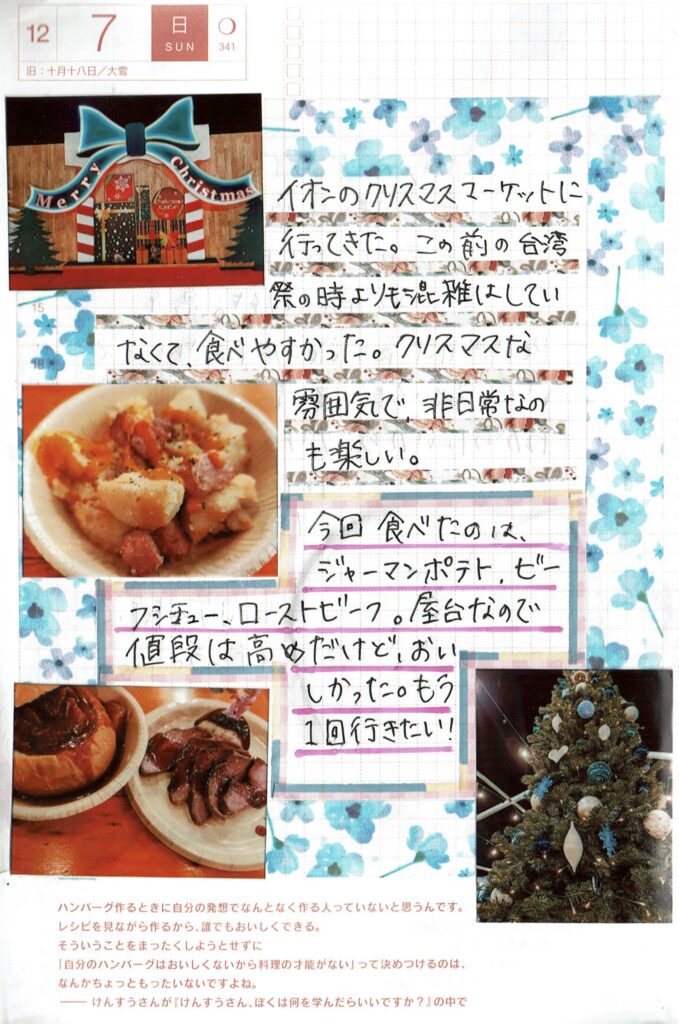 12 7 日 SUN 341
旧：十月十八日／大雪
Merry Christmas
イオンのクリスマスマーケットに
行ってきた。この前の台湾
祭の時よりも混雑はしてい
なくて、食べやすかった。クリスマスな
雰囲気で、非日常なの
も楽しい。
今回食べたのは、
ジャーマンポテト、ビー
フシチュー、ローストビーフ。屋台なので
値段は高めだけど、おい
しかった。もう
1回行きたい!
15
18
ハンバーグ作るときに自分の発想でなんとなく作る人っていないと思うんです。
レシピを見ながら作るから、誰でもおいしくできる。
そういうことをまったくしようとせずに
「自分のハンバーグはおいしくないから料理の才能がない」って決めつけるのは、
なんかちょっともったいないですよね。
―― けんすうさんが『けんすうさん、ぼくは何を学んだらいいですか？』の中で